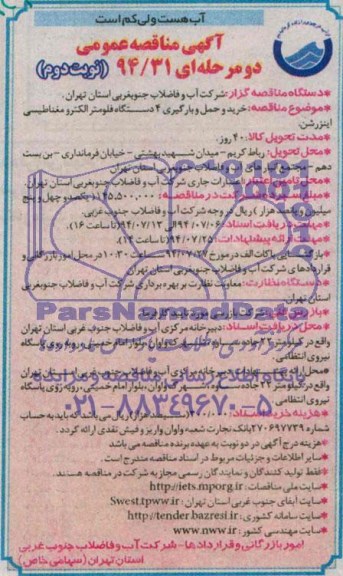 آب هست ولی کم است
آگهی مناقصه عمومی
دو مرحله‌ای ۹۴/۳۱ (نوبت دوم)
*دستگاه مناقصه گزار: شرکت آب و فاضلاب جنوبغربی استان تهران.
*موضوع مناقصه: خرید و حمل و بارگیری ۴ دستگاه فلومتر الکترو مغناطیسی
اینزرشن.
*مدت تحویل کالا: ۴۰ روز.
*محل تحویل: رباط کریم - میدان شهید بهشتی - خیابان فرمانداری - بن بست
دهم - مجتمع انبار شرکت آب و فاضلاب جنوبغربی استان تهران
*محل تامین اعتبار: اعتبارات جاری شرکت آب و فاضلاب جنوبغربی استان تهران
شرکت در مناقصه: ۱۴۵,۵۰۰,۰۰۰ (یکصد و چهل و پنج
میلیون و پانصد هزار) ریال در وجه شرکت آب و فاضلاب جنوب غربی.
*مهلت دریافت اسناد: ۹۴/۰۷/۱۳ (تا ساعت ۱۶).
*مهلت ارائه پیشنهادات: ۹۴/۰۷/۲۵ (تا ساعت ۱۴).
ساعت ۱۰:۳۰ در محل امور بازرگانی و
قراردادهای شرکت آب و فاضلاب جنوبغربی استان تهران
*دستگاه نظارت: معاونت نظارت بر بهره برداری شرکت آب و فاضلاب جنوبغربی
استان تهران
ParsNamadData
*محل دریافت اسناد: دبیرخانه مرکزی آب و فاضلاب جنوب غربی استان تهران
واقع در کیلومتر ۲۳ جاده ساوه، بلوار امام خمینی، روبه روی پاسگاه
نیروی انتظامی.
دبیرخانه مرکزی آب و فاضلاب جنوب غربی استان تهران
واقع در کیلومتر ۲۳ جاده ساوه، بلوار امام خمینی، روبه روی پاسگاه
نیروی انتظامی.
۰۲۱-۸۸۳۴۹۶۷۰-۵
*هزینه خرید اسناد: ریال می باشد که باید به حساب
شماره ۲۷۰۶۹۷۷۳۹ بانک تجارت شعبه واوان واریز و فیش نقدی ارائه گردد.
*هزینه درج آگهی در دو نوبت به عهده برنده مناقصه می باشد
*سایر اطلاعات و جزئیات مربوط در اسناد مناقصه مندرج است.
*فقط تولید کنندگان و نمایندگان رسمی مجاز به شرکت در مناقصه هستند.
*سایت ملی مناقصات: http://iets.mporg.ir
*سایت آبفای جنوب غربی استان تهران: Swest.tpww.ir
*سایت سامانه کشوری: http://tender.bazresi.ir
*سایت مهندسی کشور: www.nww.ir
امور بازرگانی و قراردادها - شرکت آب و فاضلاب جنوب غربی
استان تهران (سهامی خاص)